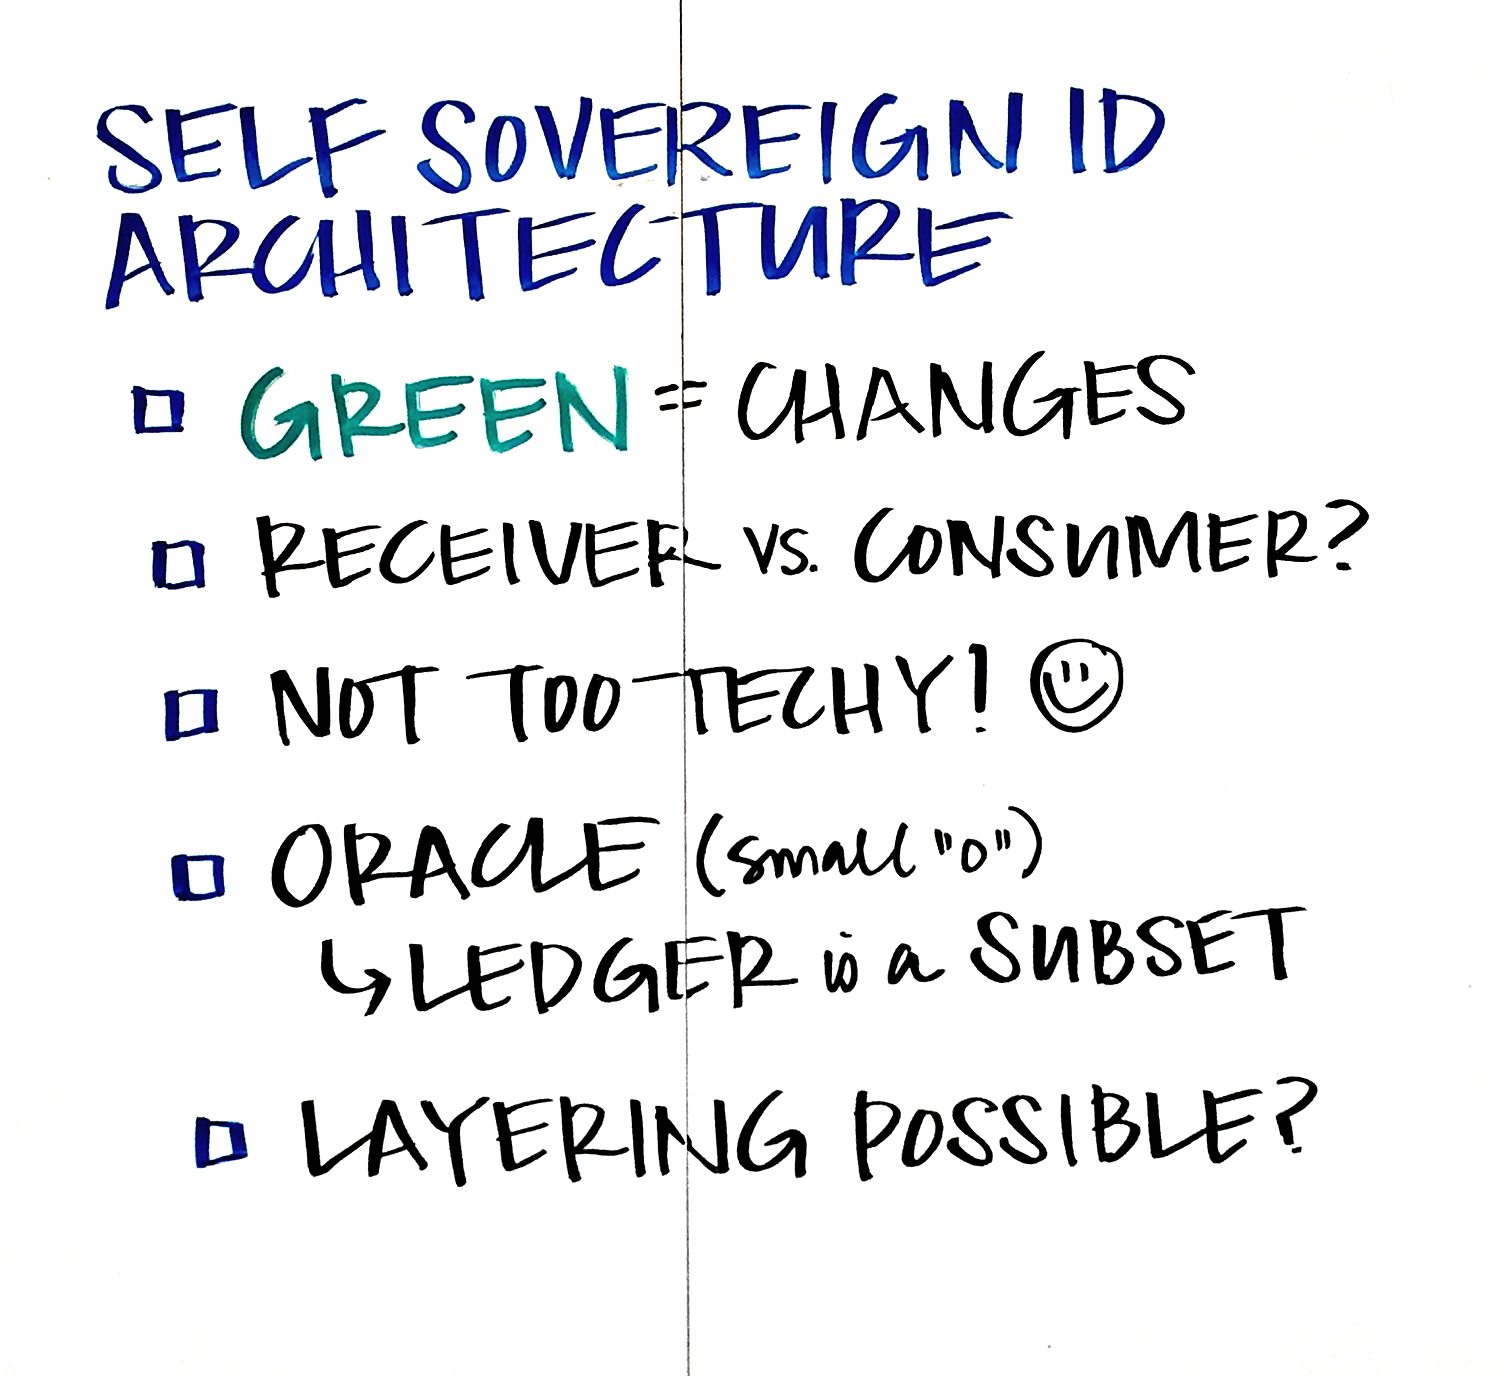 SELF SOVEREIGN ID
ARCHITECTURE
GREEN = CHANGES
RECEIVER VS. CONSUMER?
NOT TOO TECHY!
ORACLE (small "o")
↳ LEDGER is a SUBSET
LAYERING POSSIBLE?